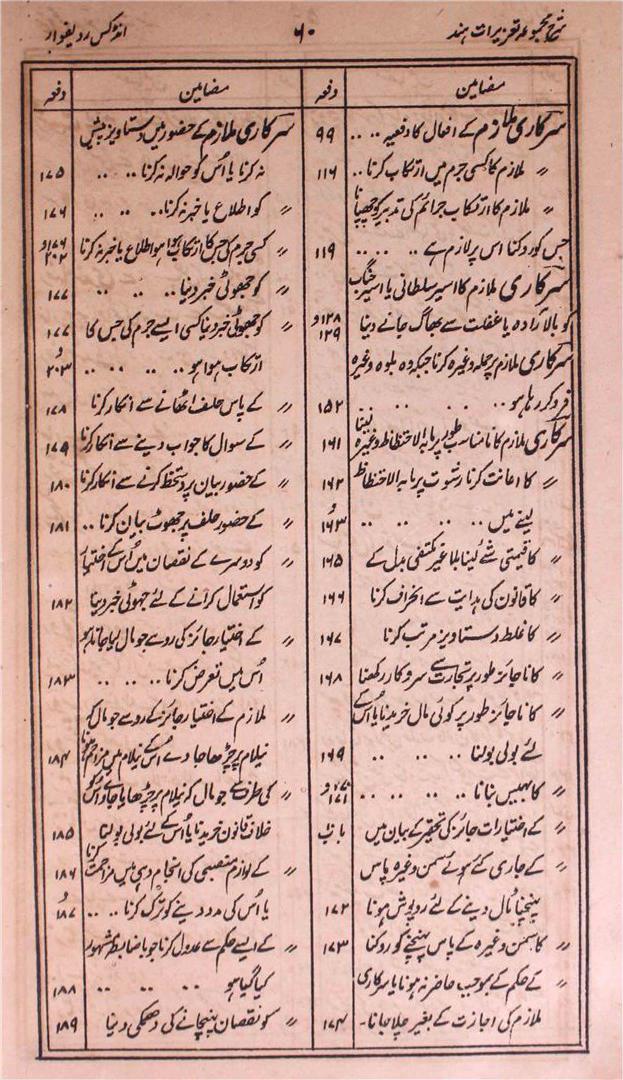 شرح مجموعہ تعزیرات ہند
۶۰
انڈکس ردیفوار
مضامین
دفعہ
سرکاری ملازم کے افعال کا دفعیہ .. .. ۹۹
〃 ملازم کا کسی جرم میں ارتکاب کرنا .. ۱۱۶
〃 ملازم کا ارتکاب جرائم کی تدبیر کو چھپانا
جس کو روکنا اس پر لازم ہے .. .. .. ۱۱۹
سرکاری ملازم کا اسیر سلطانی یا اسیر جنگ
کو بالارادہ یا غفلت سے بھاگ جانے دینا ۱۲۸ و ۱۲۹
سرکاری ملازم پر حملہ وغیرہ کرنا جبکہ وہ بلوہ وغیرہ
فرو کر رہا ہو .. .. .. .. ۱۵۲
سرکاری ملازم کا نامناسب طور پر مابہ الاحتظاظ وغیرہ لینا ۱۶۱
〃 کا اعانت کرنا رشوت یا مابہ الاحتظاظ ۱۶۲
لینے میں .. .. .. .. و ۱۶۳
〃 کا قیمتی شے لینا بلا غیر مکتفی بدل کے ۱۶۵
〃 کا قانون کی ہدایت سے انحراف کرنا ۱۶۶
〃 کا غلط دستاویز مرتب کرنا ۱۶۷
〃 کا ناجائز طور پر تجارت سے سروکار رکھنا ۱۶۸
〃 کا ناجائز طور پر کوئی مال خریدنا یا اس کے
لئے بولی بولنا .. .. .. ۱۶۹
〃 کا بھیس بنانا .. .. .. .. ۱۷۰ و ۱۷۱
〃 کے اختیارات جائز کی تحقیر کے بیان میں باب
〃 کے جاری کئے ہوئے سمن وغیرہ پاس
پہنچنا ٹال دینے کے لئے روپوش ہونا ۱۷۲
〃 کا سمن وغیرہ کے پاس پہنچنے کو روکنا ۱۷۳
〃 کے حکم کے بموجب حاضر نہ ہونا یا سرکاری
ملازم کی اجازت کے بغیر چلا جانا۔ ۱۷۴
مضامین
دفعہ
سرکاری ملازم کے حضور میں دستاویز پیش
نہ کرنا یا اُس کو حوالہ نہ کرنا .. .. .. ۱۷۵
〃 کو اطلاع یا خبر نہ کرنا .. .. .. ۱۷۶
〃 کسی جرم کی جس کا ارتکاب ہوا ہو اطلاع یا خبر نہ کرنا ۱۷۶ و ۲۰۲
〃 کو جھوٹی خبر دینا .. .. .. ۱۷۷
〃 کو جھوٹی خبر دینا کسی ایسے جرم کی جس کا ۱۷۷
ارتکاب ہوا ہو .. .. .. .. و ۲۰۳
〃 کے پاس حلف اٹھانے سے انکار کرنا ۱۷۸
〃 کے سوال کا جواب دینے سے انکار کرنا ۱۷۹
〃 کے حضور بیان پر دستخط کرنے سے انکار کرنا ۱۸۰
〃 کے حضور حلف پر جھوٹ بیان کرنا .. ۱۸۱
〃 کو دوسرے کے نقصان میں اُس کے اختیار
کو استعمال کرانے کے لئے جھوٹی خبر دینا ۱۸۲
〃 کے اختیار جائز کی رو سے جو مال لیا جاتا ہو
اُس میں تعرض کرنا .. .. .. ۱۸۳
〃 ملازم کے اختیار جائز کے رو سے جو مال کہ
نیلام پر چڑھا جاوے اُس کے نیلام میں مزاحم ہونا ۱۸۴
〃 کی طرف سے جو مال کہ نیلام پر چڑھایا جاوے اُس کو
خلاف قانون خریدنا یا اُس کے لئے بولی بولنا ۱۸۵
〃 کے لوازم منصبی کی انجام دہی میں مزاحمت کرنا ۱۸۶
یا اُس کی مدد دینے کو ترک کرنا .. .. و ۱۸۷
〃 کے ایسے حکم سے عدول کرنا جو باضابطہ مشہور
کیا گیا ہو .. .. .. ۱۸۸
〃 کو نقصان پہنچانے کی دھمکی دینا ۱۸۹